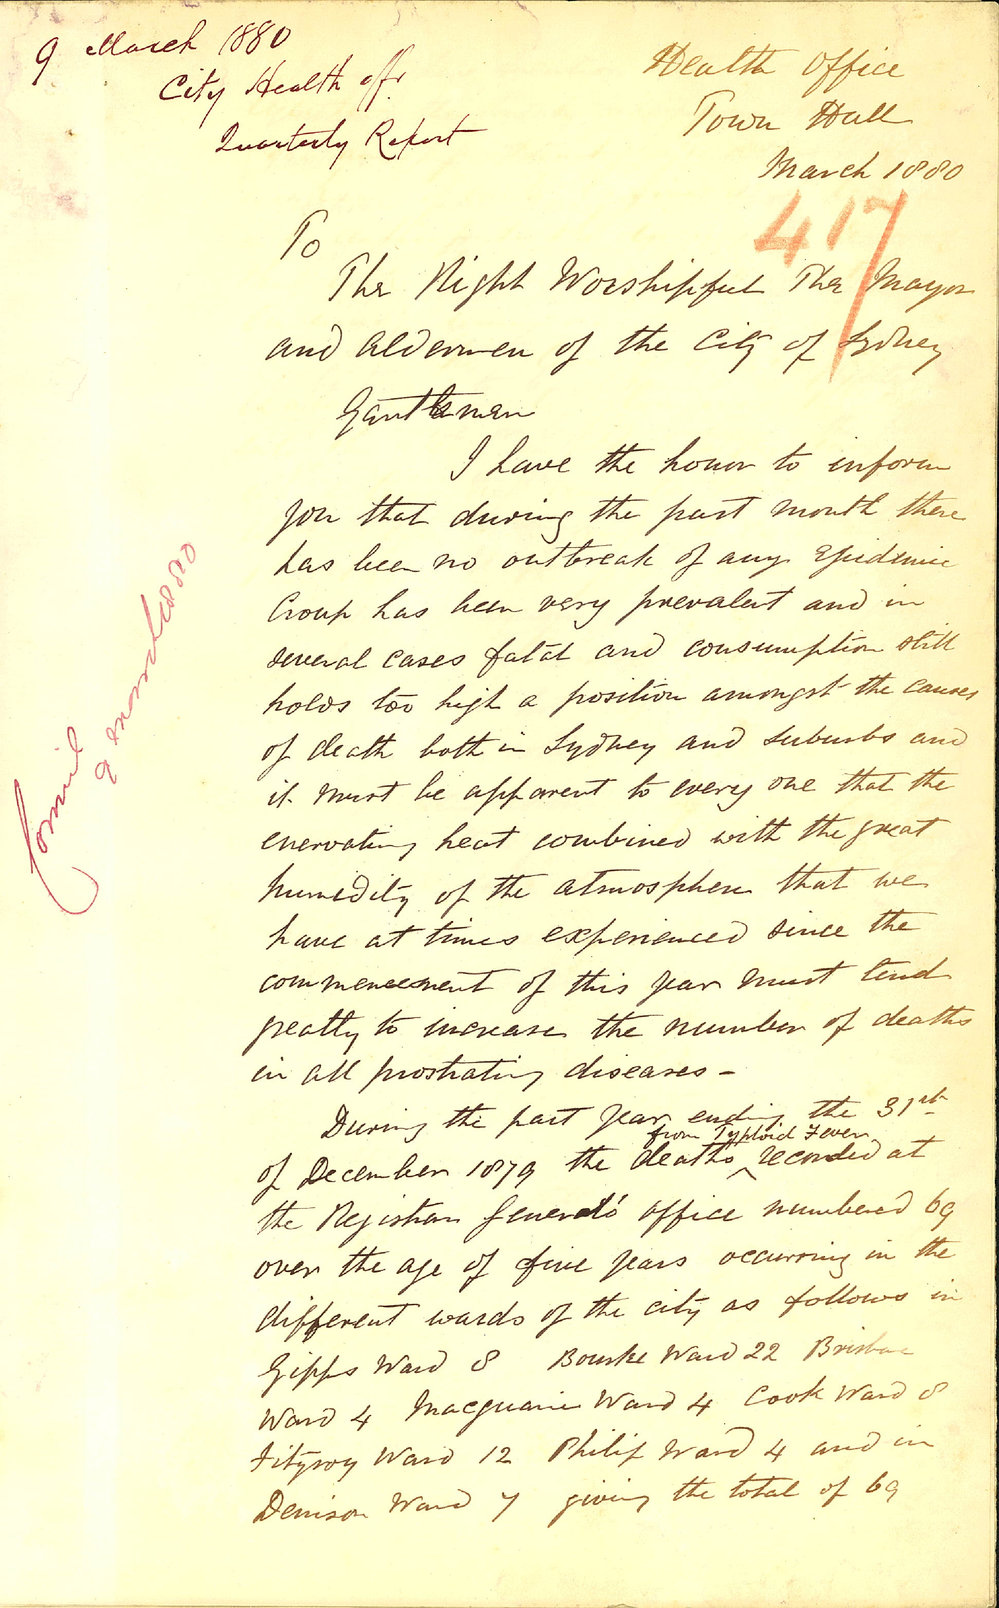 9 March 1880
City Health offr
Quarterly Report
Health Office
Town Hall
March 1880
417
To
The Right Worshipful The Mayor
and Aldermen of the City of Sydney
Gentlemen
I have the honor to inform
you that during the past month there
has been no outbreak of any Epidemic
Croup has been very prevalent and in
several cases fatal and consumption still
holds too high a position amongst the causes
of death both in Sydney and suburbs and
it must be apparent to every one that the
enervating heat combined with the great
humidity of the atmosphere that we
have at times experienced since the
commencement of this year must tend
greatly to increase the number of deaths
in all prostrating diseases -
During the past year ending the 31st
from Typhoid Fever
of December 1879 the deaths ^ recorded at
the Registrar General's office numbered 69
over the age of five years occurring in the
different wards of the city as follows in
Gipps Ward 8 Bourke Ward 22 Brisbane
Ward 4 Macquarie Ward 4 Cook Ward 8
Fitzroy Ward 12 Philip Ward 4 and in
Denison Ward 7 giving the total of 69
Council
9 March 1880